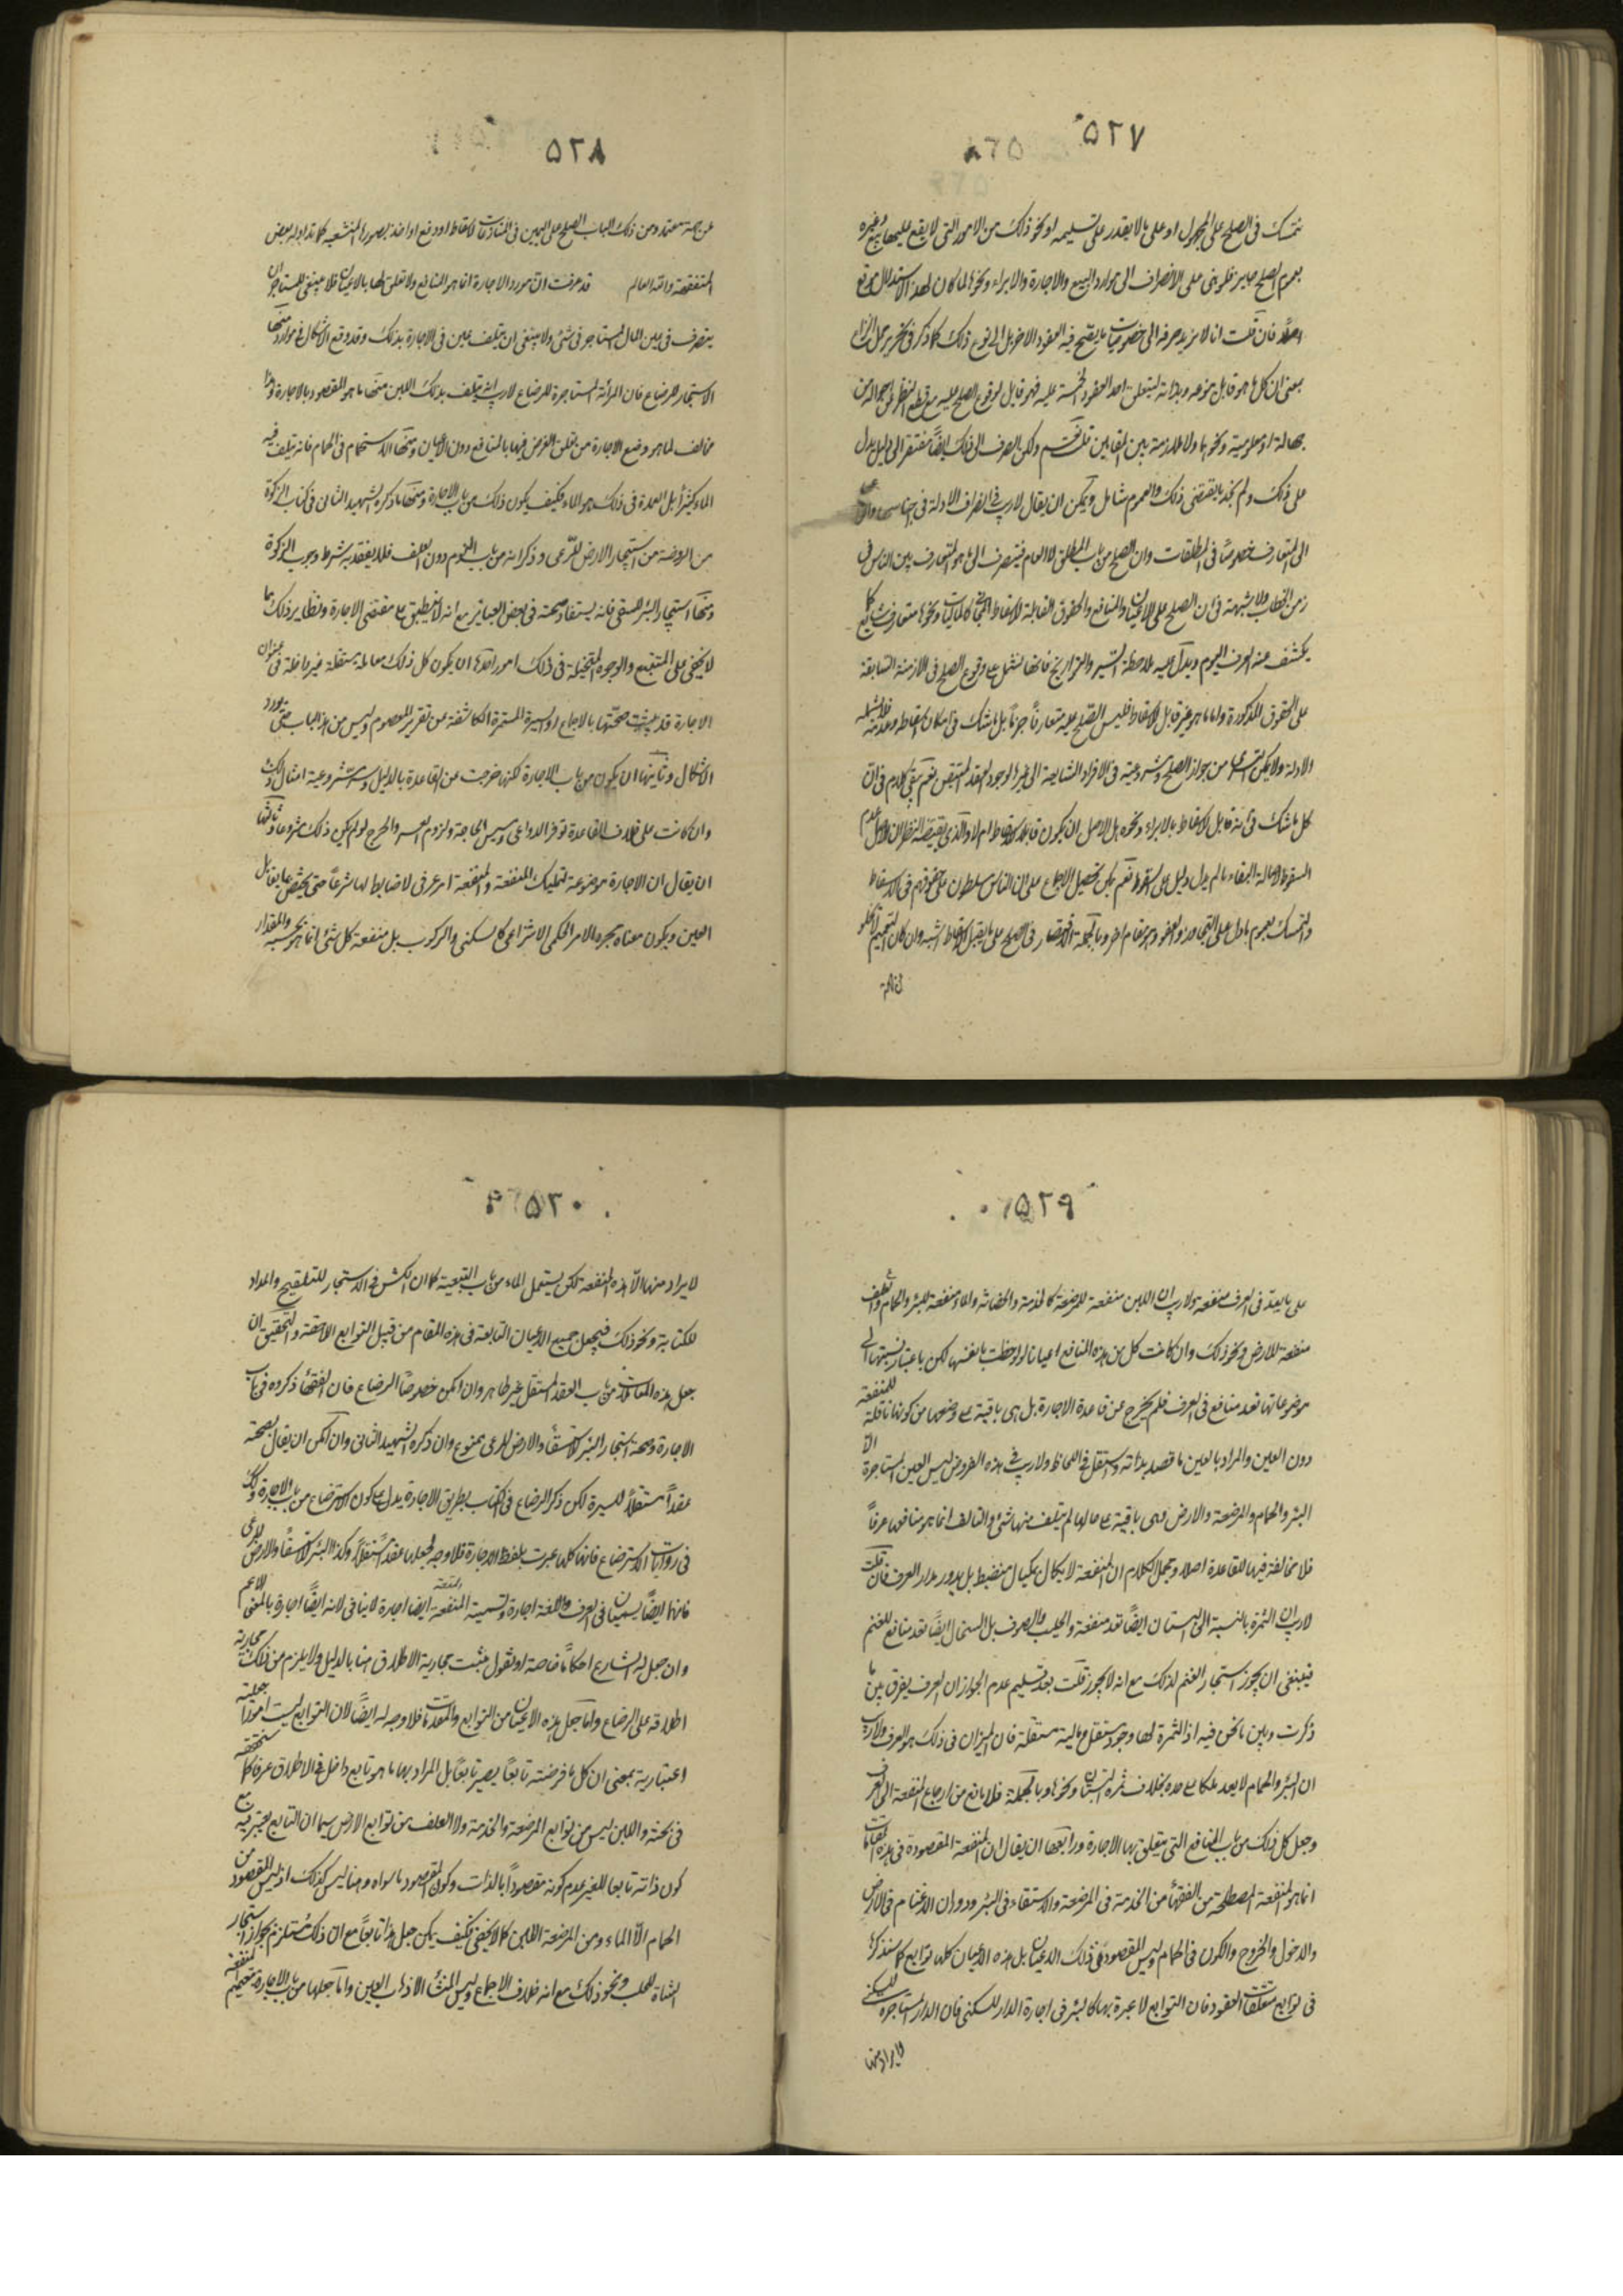 ٥٢٧
نتمسك في الصلح على المجهول او على ما لا يقدر على تسليمه او نحو ذلك من الامور التي لا يقع عليها بيع وغيره
بعموم الصلح جايز فلو بنى على الانصراف الى موارد البيع والاجارة والابراء ونحوها لما كان لهذا الاستدلال موقع
اصلا فان قلت انا لا نريد صرفه الى خصوصيات ما يصح فيه العقود الاخر بل الى نوع ذلك كما ذكر في تحرير محل النزاع
بمعنى ان كل ما هو قابل بنوعه وبذاته ليتعلق احد العقود الخمسة عليه فهو قابل لوقوع الصلح عليه مع قطع النظر عن احواله من
جهالة او معلومية ونحوهما ولا ملازمة بين المقامين قلت نعم ولكن الصرف الى ذلك ايضا مفتقر الى دليل يدل
على ذلك ولم نجد ما يقتضي ذلك والعموم شامل ويمكن ان يقال لا ريب في انصراف الادلة في
الى المتعارف خصوصا في المطلقات وان الصلح من باب المطلق لا العام فينصرف الى ما هو المتعارف بين الناس في
زمن الخطاب ولا شبهة في ان الصلح على الاعيان والمنافع والحقوق القابلة للاسقاط كالماليات ونحوها متعارف شايع كما
يكشف عنه العرف اليوم ويدل عليه ملاحظة السير والتواريخ فانها تشتمل على وقوع الصلح في الازمنة السابقة
على الحقوق المذكورة واما ما هو غير قابل للاسقاط فليس الصلح عليه متعارفا جزما بل ما شك في امكان اسقاطه وعدمه فلا تشمله
الادلة ولا يمكن التسري من جواز الصلح ومشروعيته في الافراد الشايعة الى غيرها لوجود القدر المتيقن نعم يبقى كلام في ان
كل ما شك في انه قابل للاسقاط بالابراء ونحوه هل الاصل ان يكون قابلا للاسقاط ام لا والذي يقتضيه النظر ان الاصل عدم
السقوط لاصالة البقاء ما لم يدل دليل على السقوط نعم يمكن تحصيل الاجماع على ان الناس مسلطون على حقوقهم في الاسقاط
والتمسك بعموم ما دل على التجاوز والعفو وهو مقام اخر وبالجملة فالاقتصار في الصلح على ما يقبل الاسقاط اشبه وان كان التعميم لا يخلو
٥٢٨
عن جهة معتمد ومن ذلك الباب الصلح على اليمين في المنازعات لاسقاطه او وقع او اخذ بصورها المنشعبه كما تداوله بعض
المتفقهة والله العالم قد عرفت ان مورد الاجارة انما هو المنافع ولا تعلق لها بالاعيان فلا ينبغي للمستاجر ان
يتصرف في عين المال المستاجر في شيء ولا ينبغي ان يتلف عين في الاجارة بذلك وقد وقع الاشكال في موارد منها
الاستيجار للرضاع فان المرأة المستاجرة للرضاع لا ريب انه يتلف بذلك اللبن منها ما هو المقصود بالاجارة وهذا
مخالف لما هو وضع الاجارة من تعلق الغرض فيها بالمنافع دون الاعيان ومنها الاستحمام في الحمام فانه يتلف فيه
الماء كثيرا بل العمدة في ذلك هو الماء فكيف يكون ذلك من باب الاجارة ومنها ما ذكره الشهيد الثاني في كتاب الزكوة
من الروضة من استيجار الارض للرعي وذكر انه من باب السوم دون العلف فلا يفقد به شرط وجوب الزكوة
ومنها استيجار البئر للسقي فانه يستفاد صحته في بعض العباير مع انه لا ينطبق على مقتضى الاجارة ونظاير ذلك مما
لا يخفى على المتتبع والوجوه المتخيلة في ذلك امور احدها ان يكون كل ذلك معاملة مستقلة غير داخلة في عنوان
الاجارة قد ثبتت صحتها بالاجماع او السيرة المستمرة الكاشفة عن تقرير المعصوم وليس من هذا الباب حتى يورد
الاشكال وثانيها ان يكون من باب الاجارة لكنها خرجت عن القاعدة بالدليل ومشروعية امثال ذلك
وان كانت على خلاف القاعدة لتوفر الدواعي ومسيس الحاجة ولزوم العسر والحرج لو لم يكن ذلك مشروعا وثالثها
ان يقال ان الاجارة موضوعة لتمليك المنفعة والمنفعة امر عرفي لا ضابط لها شرعا حتى يختص بما يقابل
العين ويكون معناه مجرد الامر الحكمي الانتزاعي كالسكنى والركوب بل منفعة كل شيء انما هو بحسبه والمقدار
٥٢٩
على ما يعد في العرف منفعة ولا ريب ان اللبن منفعة للمرضعة كالخدمة والحضانة والماء منفعة للبئر والحمام والعلف
منفعة للارض ونحو ذلك وان كانت كل من هذه المنافع اعيانا لو لوحظت بانفسها لكن باعتبار نسبتها الى
موضوعاتها تعد منافع في العرف فلم يخرج عن قاعدة الاجارة بل هي باقية على وضعها من كونها ناقلة للمنفعة
دون العين والمراد بالعين ما قصد بذاته واستقل في اللحاظ ولا ريب في هذه الفروض ليس العين المستاجرة الا
البئر والحمام والمرضعة والارض وهي باقية على حالها لم يتلف منها شيء والتالف انما هو منافعها عرفا
فلا مخالفة فيها للقاعدة اصلا ومجمل الكلام ان المنفعة لا يكال بمكيال منضبط بل يدور مدار العرف فان قلت
لا ريب ان الثمرة بالنسبة الى البستان ايضا تعد منفعة والحليب والصوف بل السخال ايضا تعد منافع للغنم
فينبغي ان يجوز استيجار الغنم لذلك مع انه لا يجوز قلت بعد تسليم عدم الجواز ان العرف يفرق بين ما
ذكرت وبين ما نحن فيه اذ الثمرة لها وجود مستقل ومالية مستقلة فان الميزان في ذلك هو العرف ولا ريب
ان البئر والحمام لا يعد ملكا على حده بخلاف ثمرة البستان ونحوها وبالجملة فلا مانع من ارجاع المنفعة الى العرف
وجعل كل ذلك من باب المنافع التي يتعلق بها الاجارة ورابعها ان يقال ان المنفعة المقصودة في هذه المقامات
انما هو المنفعة المصطلحة من الفقهاء من الخدمة في المرضعة والاستقاء في البئر ودوران الاغنام في الارض
والدخول والخروج والكون في الحمام وليس المقصود في ذلك الاعيان بل هذه الاعيان كلها توابع كما سنذكرها
في توابع متعلقات العقود فان التوابع لا عبرة بها كالبئر في اجارة الدار للسكنى فان الدار المستاجرة للسكنى
لا يراد منها
٥٣٠
لا يراد منها الا هذه المنفعة لكن يستعمل الماء من باب التبعية كما ان الكش في الاستيجار للتلقيح والمداد
للكتابة ونحو ذلك فيجعل جميع الاعيان التابعة في هذه المقام من قبيل التوابع اللاحقة والتحقيق ان
جعل هذه المعاملات من باب العقد المستقل غير ظاهر وان امكن خصوصا الرضاع فان الفقهاء ذكروه في باب
الاجارة وصحة استيجار البئر للاستقاء والارض للرعي ممنوع وان ذكره الشهيد الثاني وان امكن ان يقال بصحته
عقدا مستقلا للسيرة لكن ذكر الرضاع في الكتاب بطريق الاجارة يدل على كون الاسترضاع من باب الاجارة وكذلك
في روايات الاسترضاع فانها كلها عبرت بلفظ الاجارة فلا وجه لجعلها عقدا مستقلا وكذا البئر للاستقاء والارض للرعي
فانهما ايضا يسميان في العرف واللغة اجارة وتسمية المنفعة ايضا اجارة لا ينافي لانه ايضا اجارة بالمعنى الاعم
وان جعل له الشارع احكاما خاصة او نقول ثبت مجازية الاطلاق هنا بالدليل ولا يلزم من ذلك مجازية
اطلاقه على الرضاع واما جعل هذه الاعيان من التوابع والمعدات فلا وجه له ايضا لان التوابع ليست امورا جعلية
اعتبارية بمعنى ان كل ما فرضته تابعا يصير تابعا بل المراد بها ما هو تابع داخل في الاطلاق عرفا كما سنحققه
في بحثه واللبن ليس من توابع المرضعة والخدمة ولا العلف من توابع الارض سيما ان التابع يعتبر فيه مع
كون ذاته تابعا للغير عدم كونه مقصودا بالذات وكون المقصود ما سواه وهنا ليس كذلك اذ ليس المقصود من
الحمام الا الماء ومن المرضعة اللبن كما لا يخفى فكيف يمكن جعل هذا تابعا مع ان ذلك مستلزم لجواز استيجار
الشاة للحلب ونحو ذلك مع انه خلاف الاجماع وليس المنشأ الا ذهاب العين واما جعلها من باب الاجارة بتعميم المنفعة